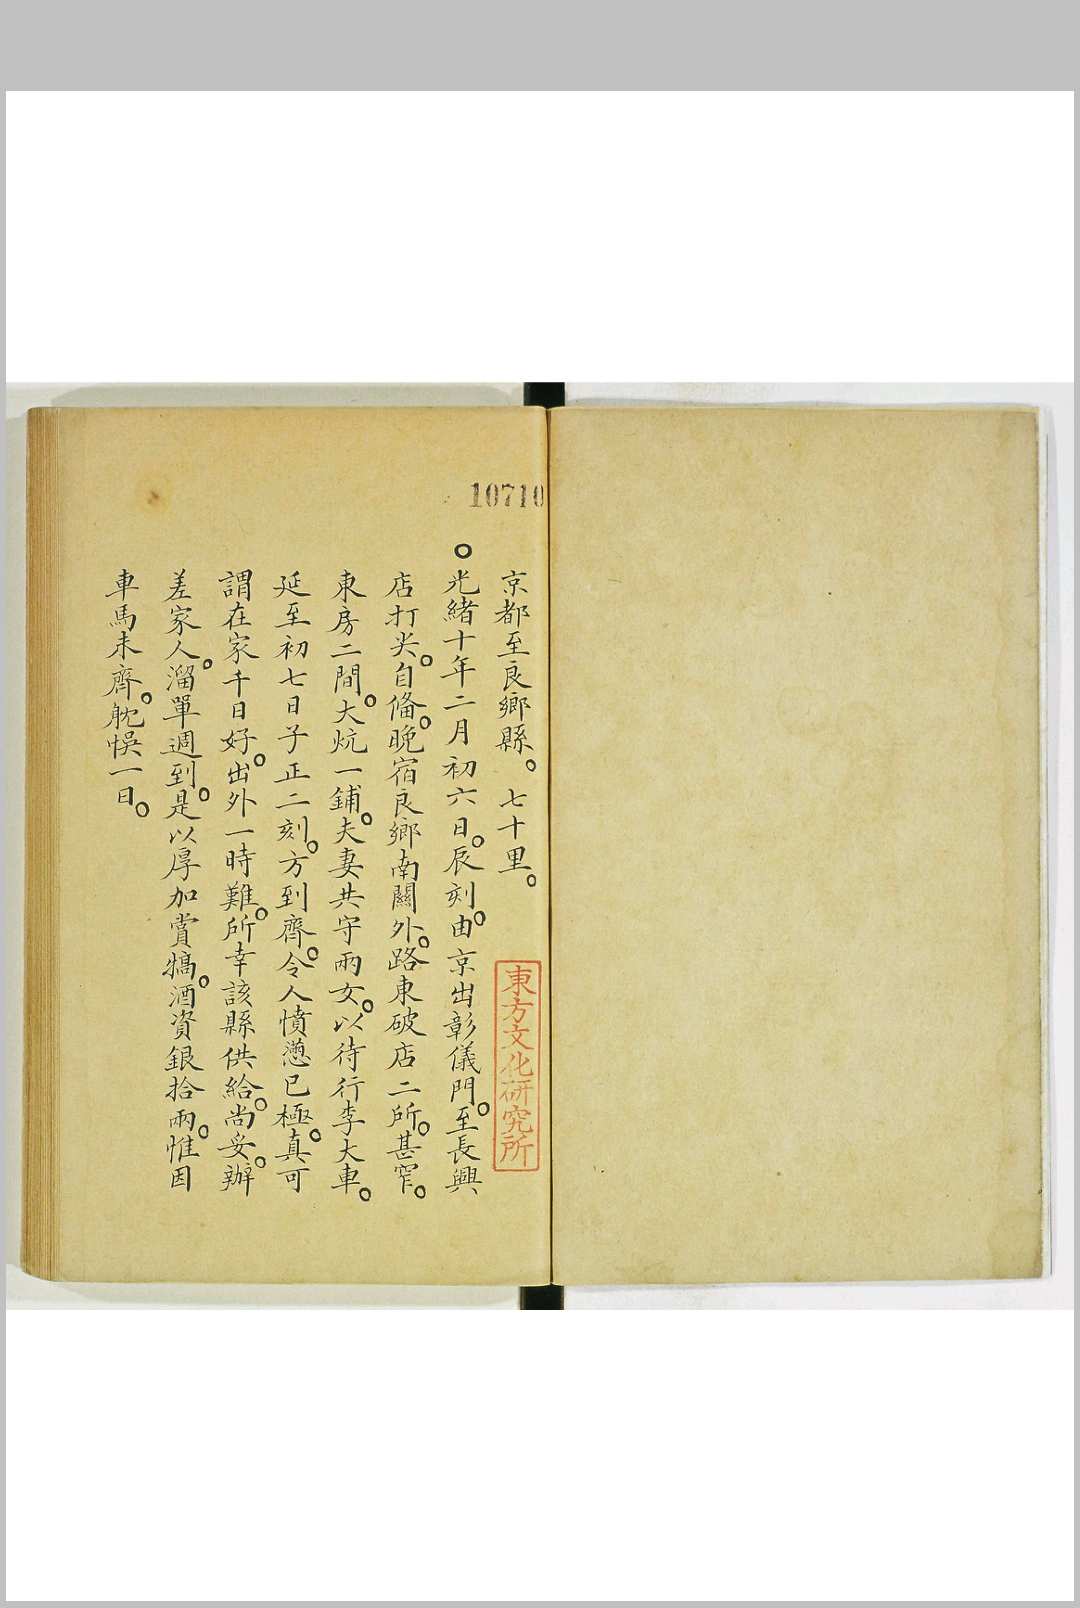 10710
京都至良鄉縣。七十里。
東方文化研究所
○光緒十年二月初六日。辰刻。由京出彰儀門。至長興
店打尖。自俻。晚宿良鄉南關外。路東破店二所。甚窄。
東房二間。大炕一鋪。夫妻共守兩女。以待行李大車。
延至初七日子正二刻。方到齊。令人憤懣已極。真可
謂在家千日好。出外一時難。所幸該縣供給。尚妥。辦
差家人。溜單週到。是以厚加賞犒。酒資銀拾兩。惟因
車馬未齊。躭悞一日。